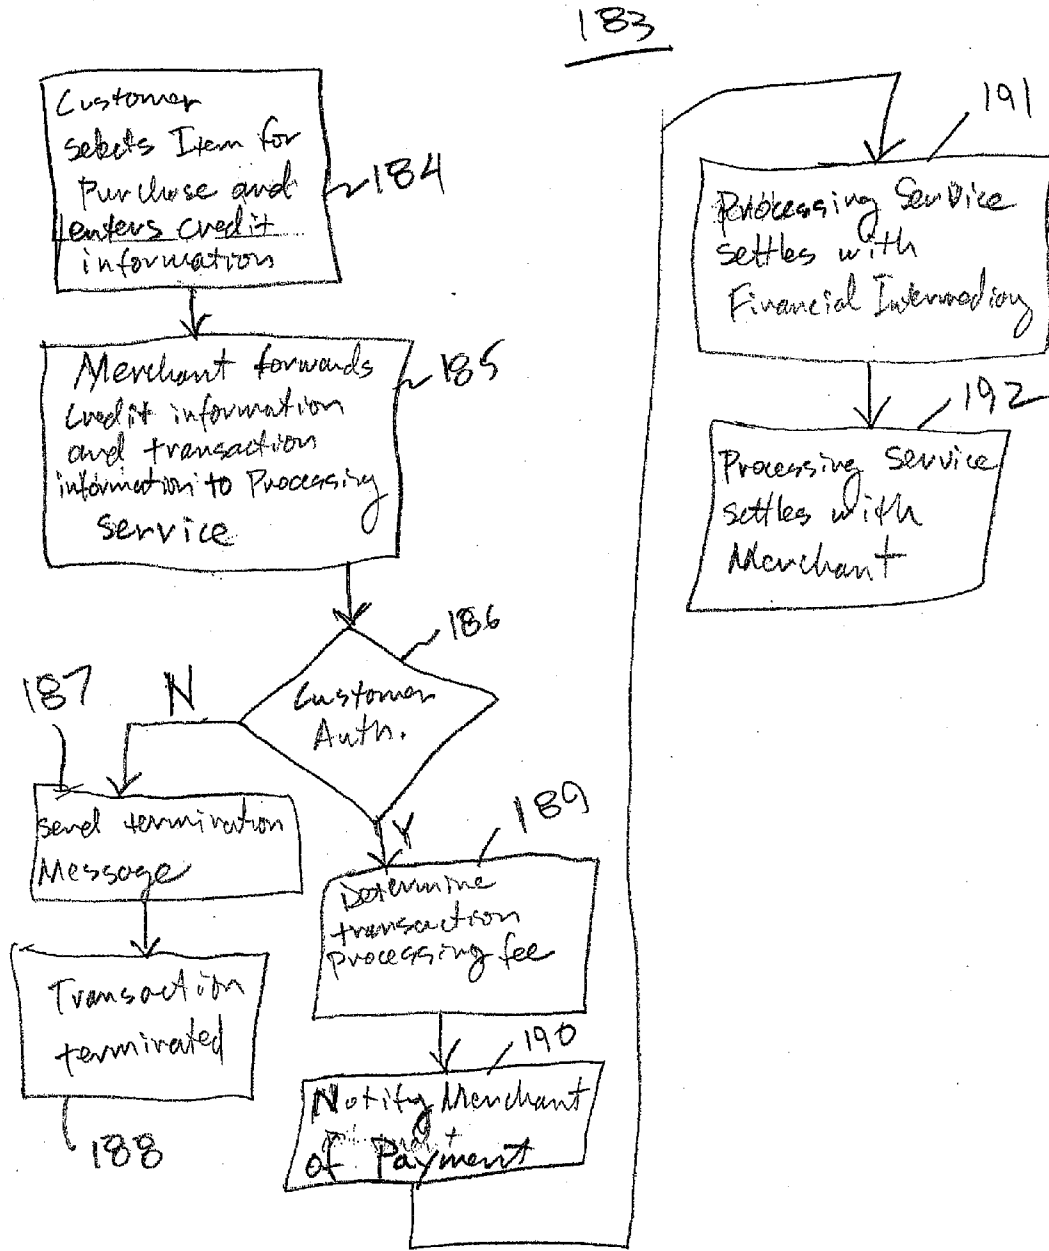 183
Customer
selects Item for
Purchase and
enters credit
information
184
Merchant forwards
credit information
and transaction
information to Processing
service
185
Customer
Auth.
186
N
187
Send termination
Message
Transaction
terminated
188
Y
189
Determine
transaction
processing fee
190
Notify Merchant
of Payment
191
Processing Service
settles with
Financial Intermediary
192
Processing Service
settles with
Merchant